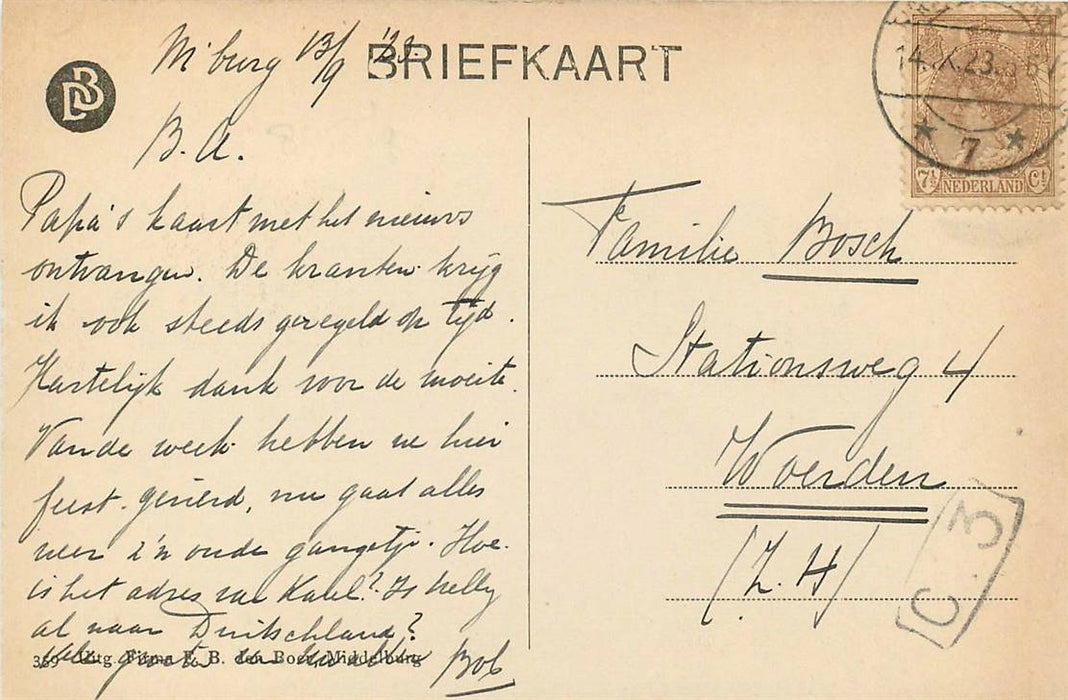 M'burg 13/9 '23.
BRIEFKAART
DB
14.IX.23.
7
7½ NEDERLAND Ct
B.A.
Papa's kaart met het nieuws
ontvangen. De kranten krijg
ik ook steeds geregeld op tijd.
Hartelijk dank voor de moeite.
Van de week hebben we hier
feest gevierd, nu gaat alles
weer z'n oude gangetje. Hoe
is het adres van Karel? Is Nelly
al naar Duitschland?
359 Uitg. Firma F. B. den Boer, Middelburg
Bob
Familie Bosch
Stationsweg 4
Woerden
(Z.H)
C.3